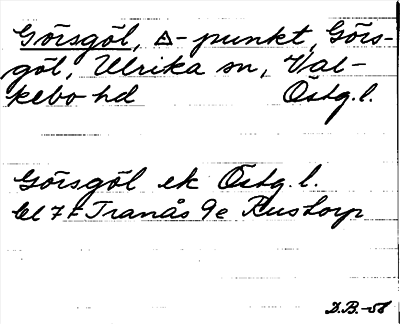 Görsgöl, △-punkt, Görs-
göl, Ulrika sn, Val-
kebo hd Östg. l.
Görsgöl ek Östg. l.
bl 7F Tranås 9e Rustorp
D.B.-58